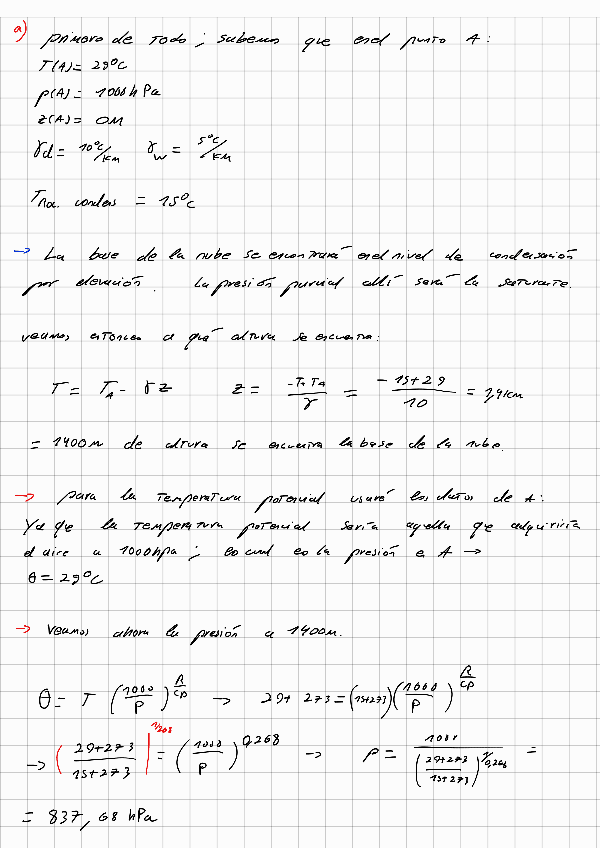 a) primero de todo; sabemos que en el punto A:
T(A) = 29ºC
p(A) = 1000 hPa
z(A) = 0m
γd = 10ºC/km γw = 5ºC/km
= 15ºC
→ La base de la nube se encontrará en el nivel de condensación
por elevación. La presión parcial allí será la saturante.
veamos entonces a qué altura se encuentra:
T = T_A - γ z z = (-T+T_A)/γ = (-15+29)/10 = 1,4 km
= 1400m de altura se encuentra la base de la nube.
→ para la temperatura potencial usaré los datos de A:
Ya que la temperatura potencial sería aquella que adquiriría
el aire a 1000hpa; lo cual es la presión e A →
θ = 29ºC
→ veamos ahora la presión a 1400m.
θ = T (1000/P)^(R/cp) → 29+273 = (15+273) (1000/P)^(R/cp)
→ ((29+273)/(15+273))^(1/0,268) = (1000/P)^0,268 → P = 1000/((29+273)/(15+273))^(1/0,268) =
= 837,68 hPa